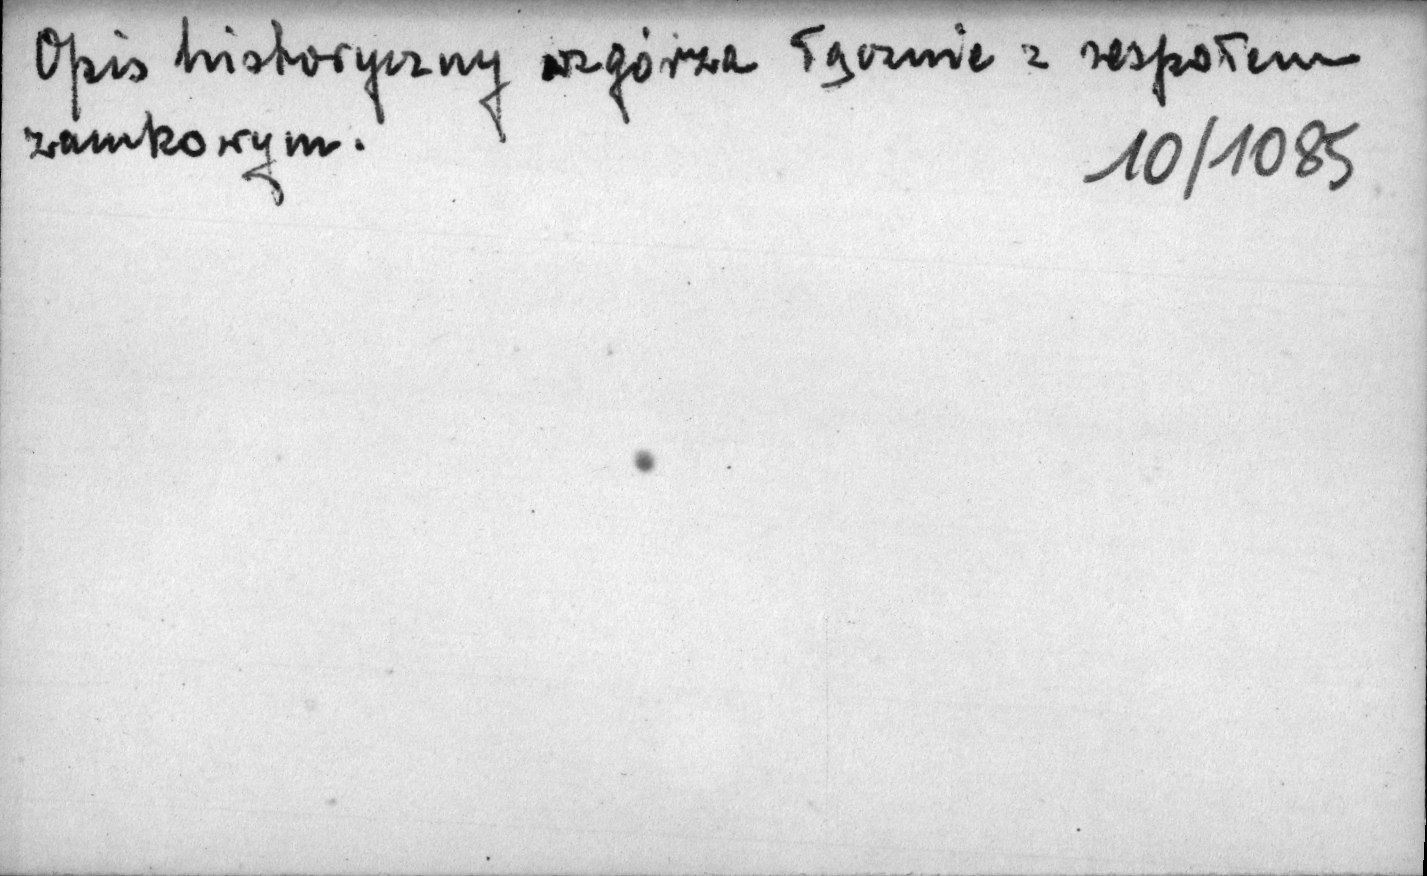 Opis historyczny wzgórza łącznie z zespołem
zamkowym.
10/1085